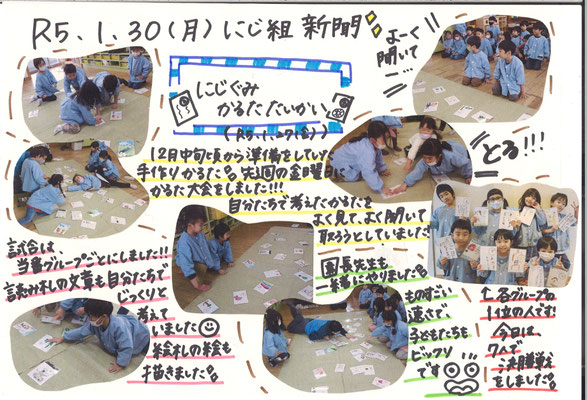 R5.1.30(月)にじ組 新聞
よーく
聞いて
にじぐみ
かるたたいかい
(R5.1.27(金))
とる!!!
12月中旬頃から準備をしていた
手作りかるた。先週の金曜日に
かるた大会をしました!!!
自分たちで考えたかるたを
よく見て、よく聞いて
取ろうとしていました!
試合は、
当番グループごとにしました!!
読み札の文章も自分たちで
じっくりと
考えて
いました
絵札の絵も
描きました。
園長先生も
一緒にやりました。
ものすごい
速さで、
子どもたちも
ビックリ
です
↑各グループの
1位の人です!
今日は、
7人で
決勝戦
をしました。